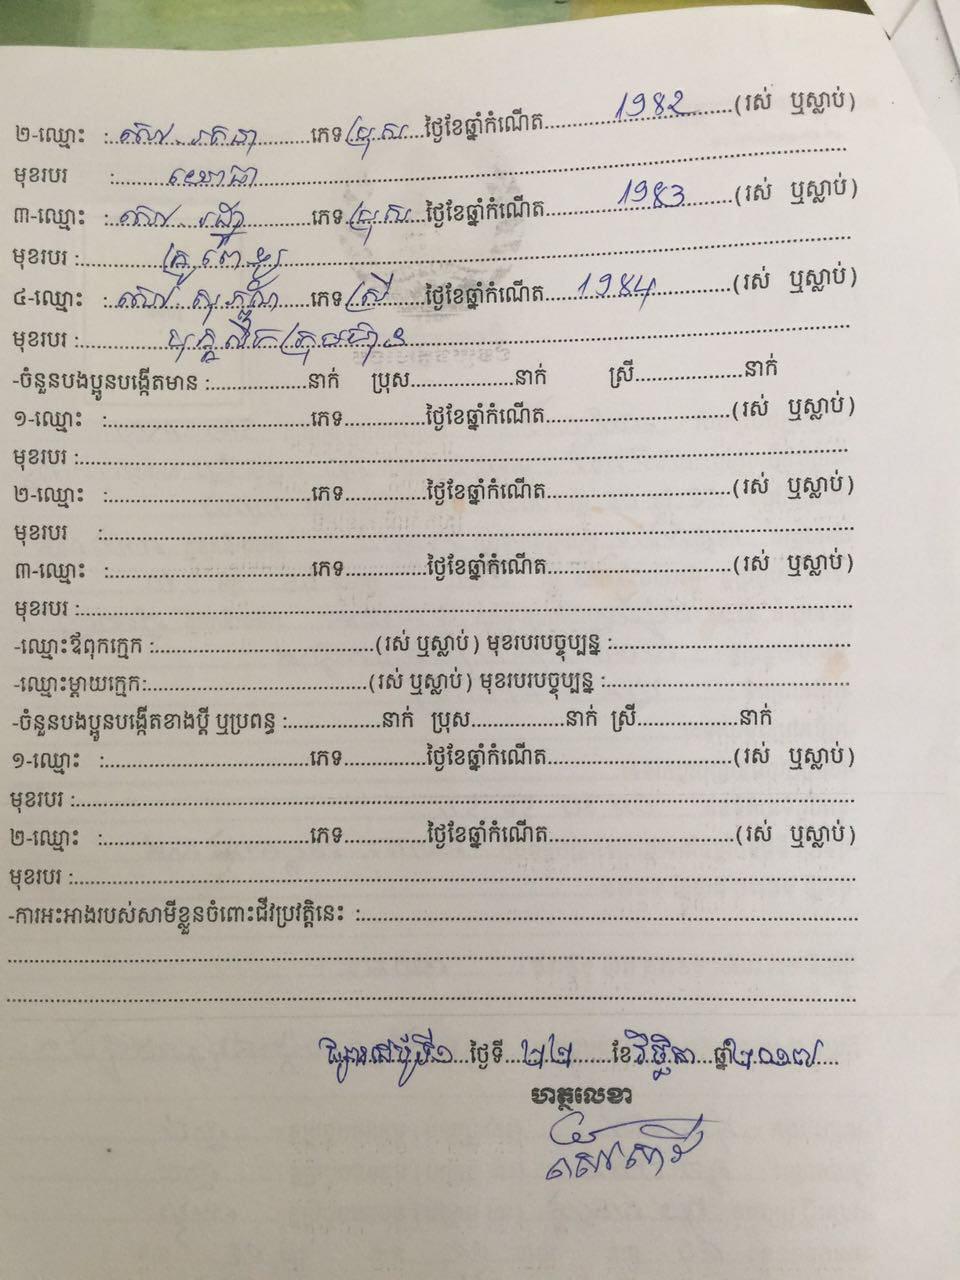 ២-ឈ្មោះ :...សៅ...រតនា...ភេទ ប្រុស ថ្ងៃខែឆ្នាំកំណើត...1982...(រស់ ឬស្លាប់)
មុខរបរ :...យោធា...
៣-ឈ្មោះ :...សៅ...ភេទ ប្រុស ថ្ងៃខែឆ្នាំកំណើត...1983...(រស់ ឬស្លាប់)
មុខរបរ :...គ្រូពេទ្យ...
៤-ឈ្មោះ :...សៅ...ភេទ ស្រី ថ្ងៃខែឆ្នាំកំណើត...1984...(រស់ ឬស្លាប់)
មុខរបរ :...បុគ្គលិកក្រុមហ៊ុន...
-ចំនួនបងប្អូនបង្កើតមាន :...នាក់ ប្រុស...នាក់ ស្រី...នាក់
១-ឈ្មោះ :...ភេទ...ថ្ងៃខែឆ្នាំកំណើត...(រស់ ឬស្លាប់)
មុខរបរ :...
២-ឈ្មោះ :...ភេទ...ថ្ងៃខែឆ្នាំកំណើត...(រស់ ឬស្លាប់)
មុខរបរ :...
៣-ឈ្មោះ :...ភេទ...ថ្ងៃខែឆ្នាំកំណើត...(រស់ ឬស្លាប់)
មុខរបរ :...
-ឈ្មោះឪពុកក្មេក :...(រស់ ឬស្លាប់) មុខរបរបច្ចុប្បន្ន :...
-ឈ្មោះម្តាយក្មេក:...(រស់ ឬស្លាប់) មុខរបរបច្ចុប្បន្ន :...
-ចំនួនបងប្អូនបង្កើតខាងប្តី ឬប្រពន្ធ :...នាក់ ប្រុស...នាក់ ស្រី...នាក់
១-ឈ្មោះ :...ភេទ...ថ្ងៃខែឆ្នាំកំណើត...(រស់ ឬស្លាប់)
មុខរបរ :...
២-ឈ្មោះ :...ភេទ...ថ្ងៃខែឆ្នាំកំណើត...(រស់ ឬស្លាប់)
មុខរបរ :...
-ការអះអាងរបស់សាមីខ្លួនចំពោះជីវប្រវត្តិនេះ :...
...ថ្ងៃទី...២២...ខែ វិច្ឆិកា...ឆ្នាំ២០១៧...
ហត្ថលេខា